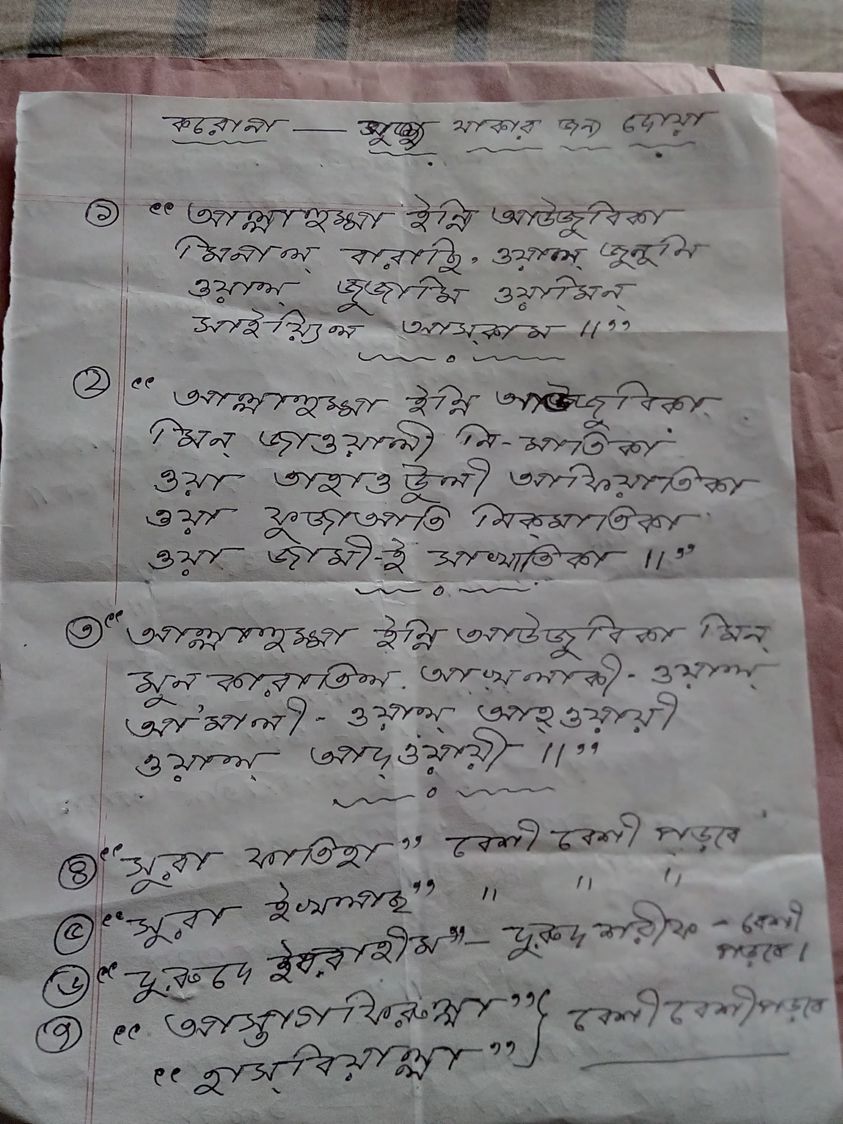 করোনা — সুস্থ থাকার জন্য দোয়া
১ “আল্লাহুম্মা ইন্নি আউজুবিকা
মিনাল্ বারাছি, ওয়াল্ জুনুনি
ওয়াল্ জুজামি ওয়ামিন্
সাইয়্যিল আস্কাম॥”
২ “আল্লাহুম্মা ইন্নি আউজুবিকা
মিন্ জাওয়ালী নি-মাতিকা
ওয়া তাহাওউলী আফিয়াতিকা
ওয়া ফুজাআতি নিক্মাতিকা
ওয়া জামী-ই সাখাতিকা॥”
৩ “আল্লাহুম্মা ইন্নি আউজুবিকা মিন্
মুনকারাতিল আখলাকী- ওয়াল্
আ'মালী - ওয়াল্ আহ্ওয়ায়ী
ওয়াল্ আদ্ওয়ায়ী॥”
৪ “সুরা ফাতিহা” বেশী বেশী পড়বে
৫ “সুরা ইখলাছ” " " "
৬ “দুরুদে ইবরাহীম” - দুরুদ শরীফ - বেশী
পড়বে।
৭ “আস্তাগফিরুল্লা” } বেশী বেশী পড়বে
“হাস্বিয়াল্লা”